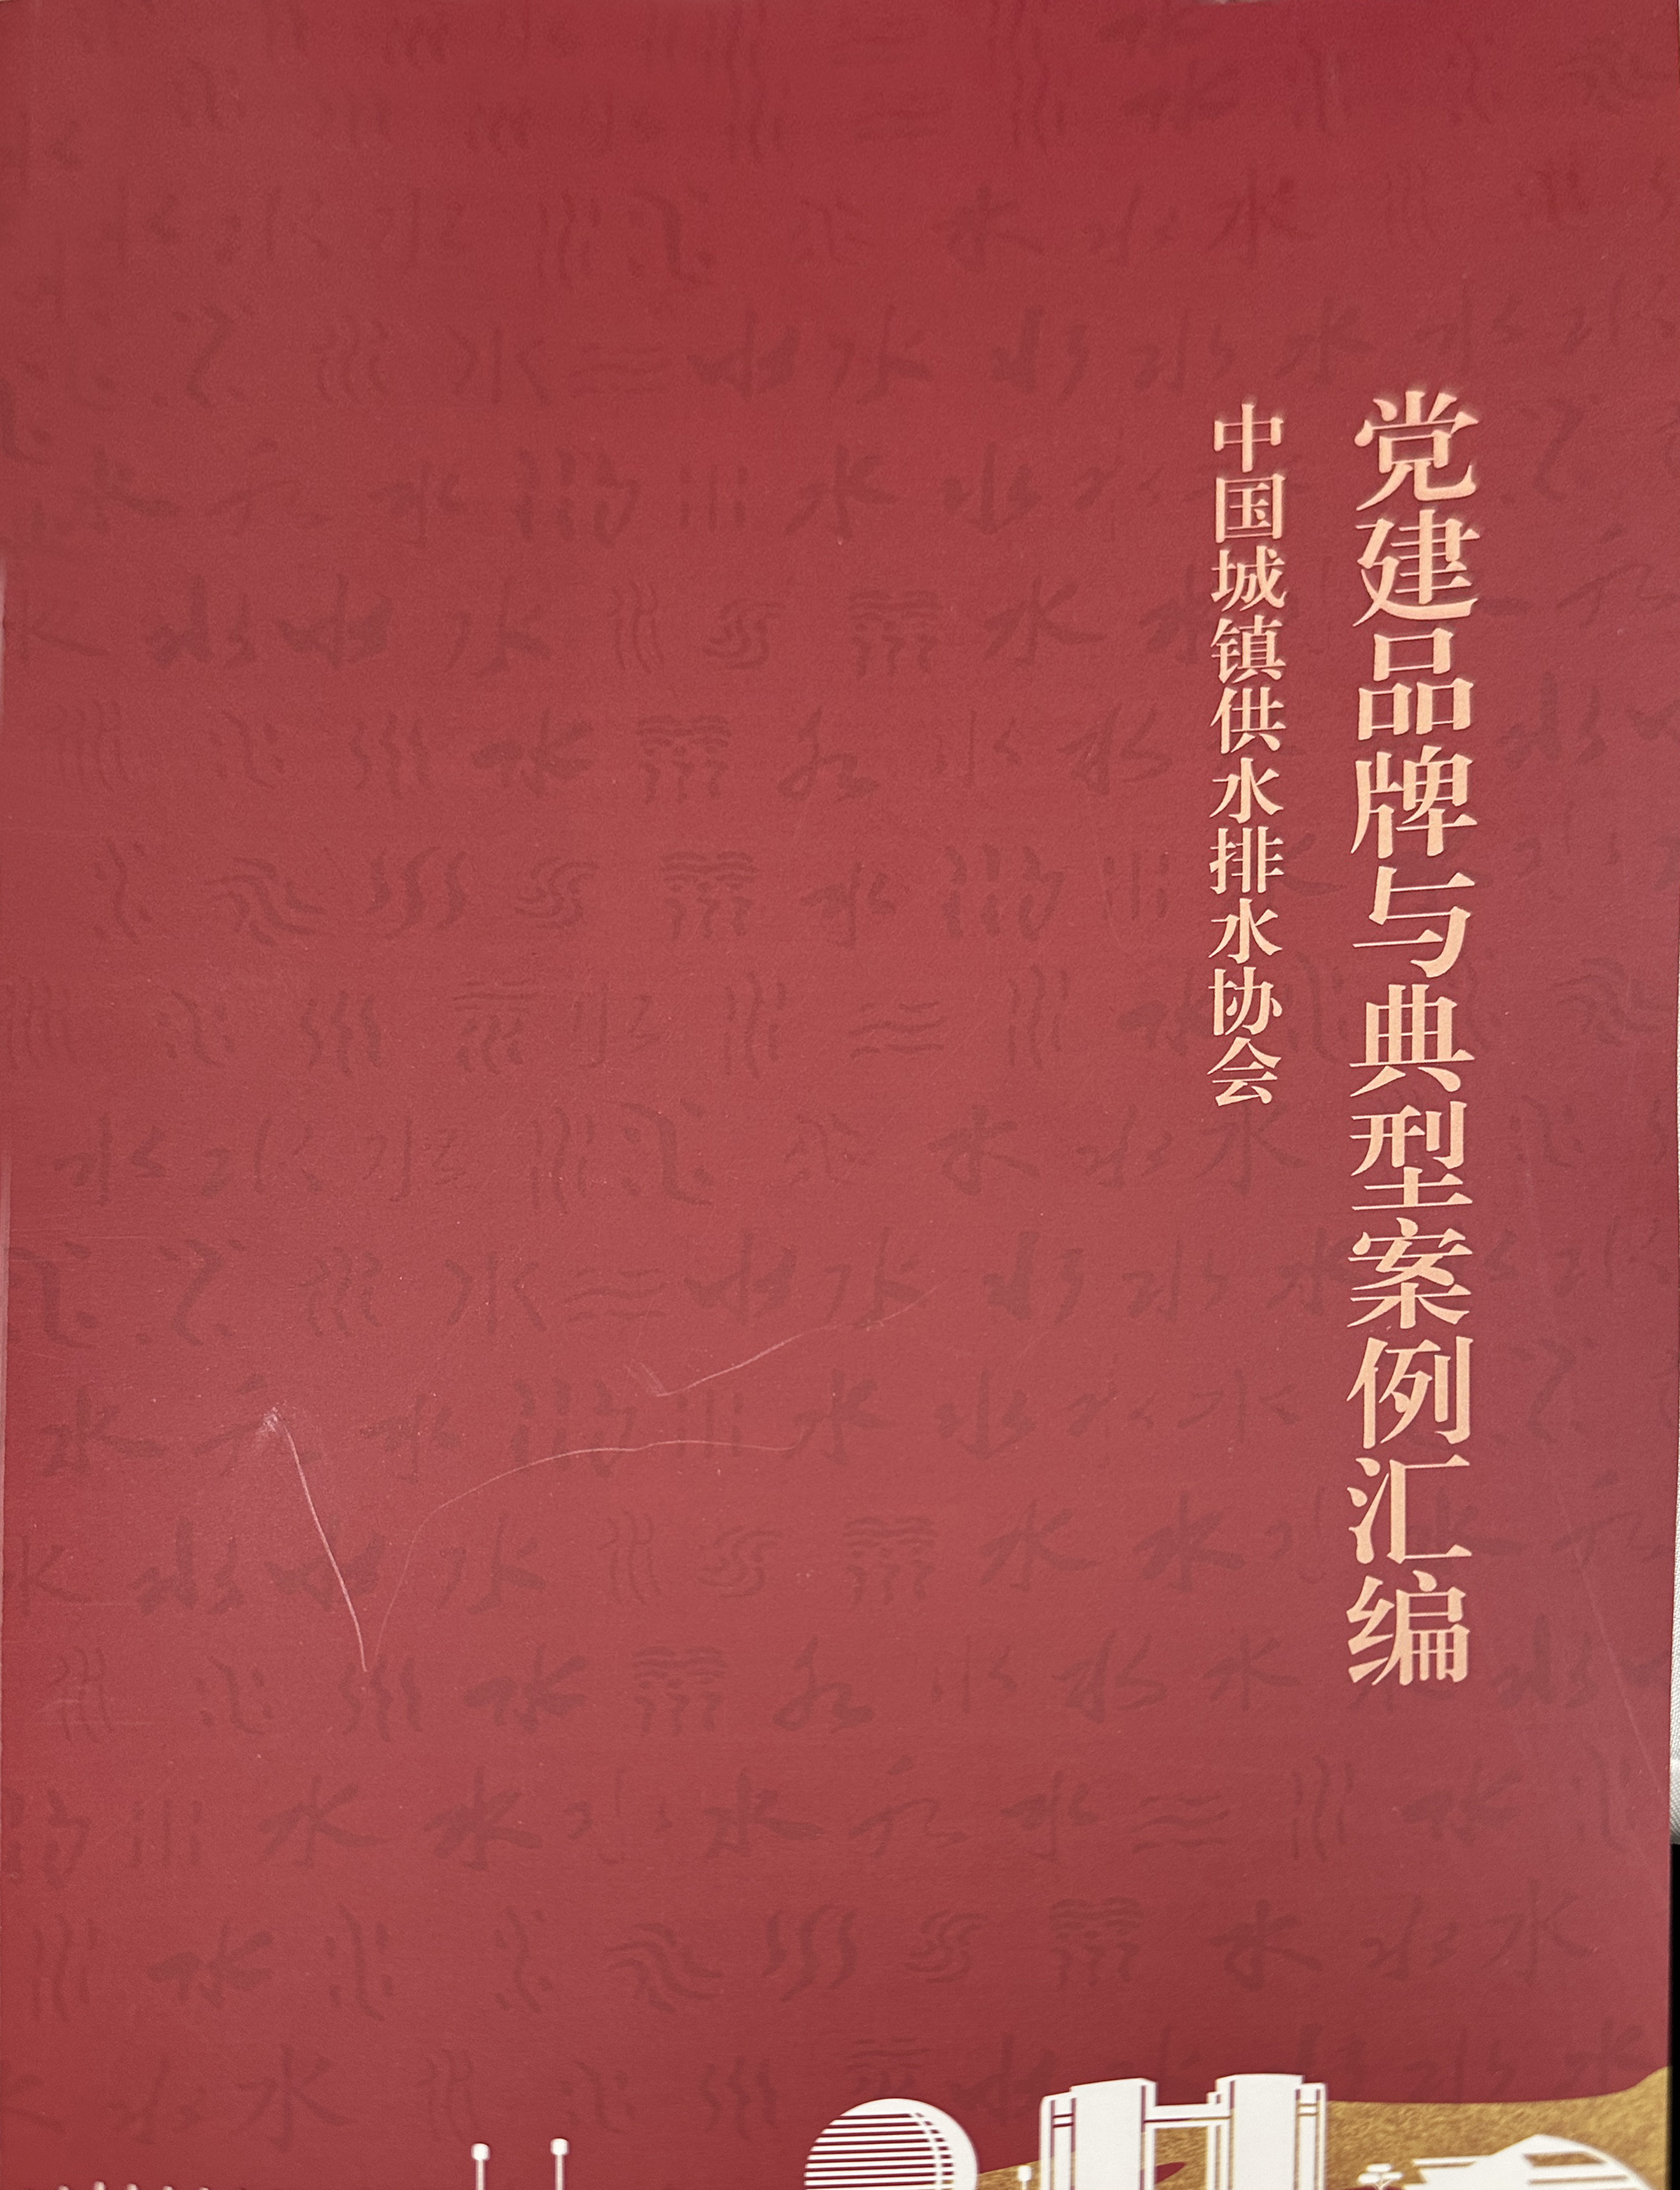 党建品牌与典型案例汇编
中国城镇供水排水协会